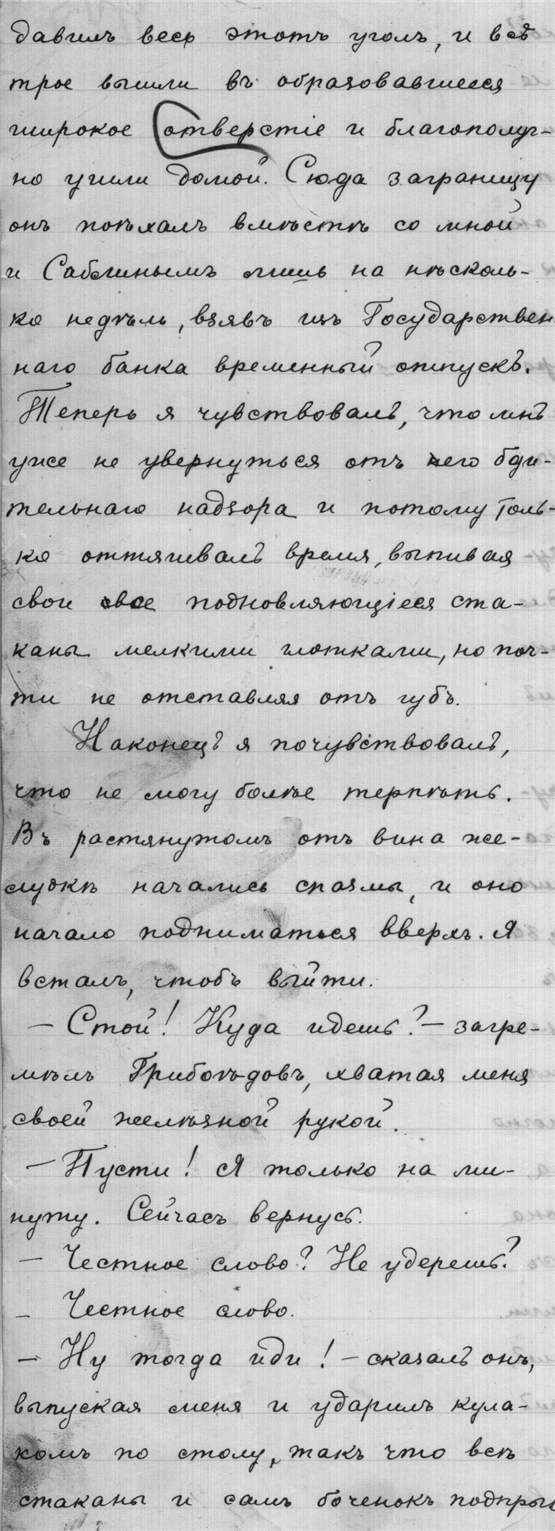 давилъ весь этотъ уголъ, и всѣ
трое вышли въ образовавшееся
широкое отверстіе и благополуч-
но ушли домой. Сюда заграницу
онъ поѣхалъ вмѣстѣ со мной
и Саблинымъ лишь на нѣсколь-
ко недѣль, взявъ изъ Государствен
наго банка временный отпускъ.
Теперь я чувствовалъ, что мнѣ
уже не увернуться отъ него бди-
тельнаго надзора и потому толь-
ко оттягивалъ время, выпивая
свои все подновляющіеся ста-
каны мелкими глотками, но поч-
ти не отставляя отъ губъ.
Наконецъ я почувствовалъ,
что не могу болѣе терпѣть.
Въ растянутомъ отъ вина же-
лудкѣ начались спазмы, и оно
начало подниматься вверхъ. Я
всталъ, чтобъ выйти.
— Стой! Куда идешь? — загре-
мѣлъ Грибоѣдовъ, хватая меня
своей желѣзной рукой.
— Пусти! Я только на ми-
нуту. Сейчасъ вернусь.
— Честное слово? Не удерешь?
— Честное слово.
— Ну тогда иди! — сказалъ онъ,
выпуская меня и ударилъ кула-
комъ по столу, такъ что всѣ
стаканы и самъ боченокъ подпрыг